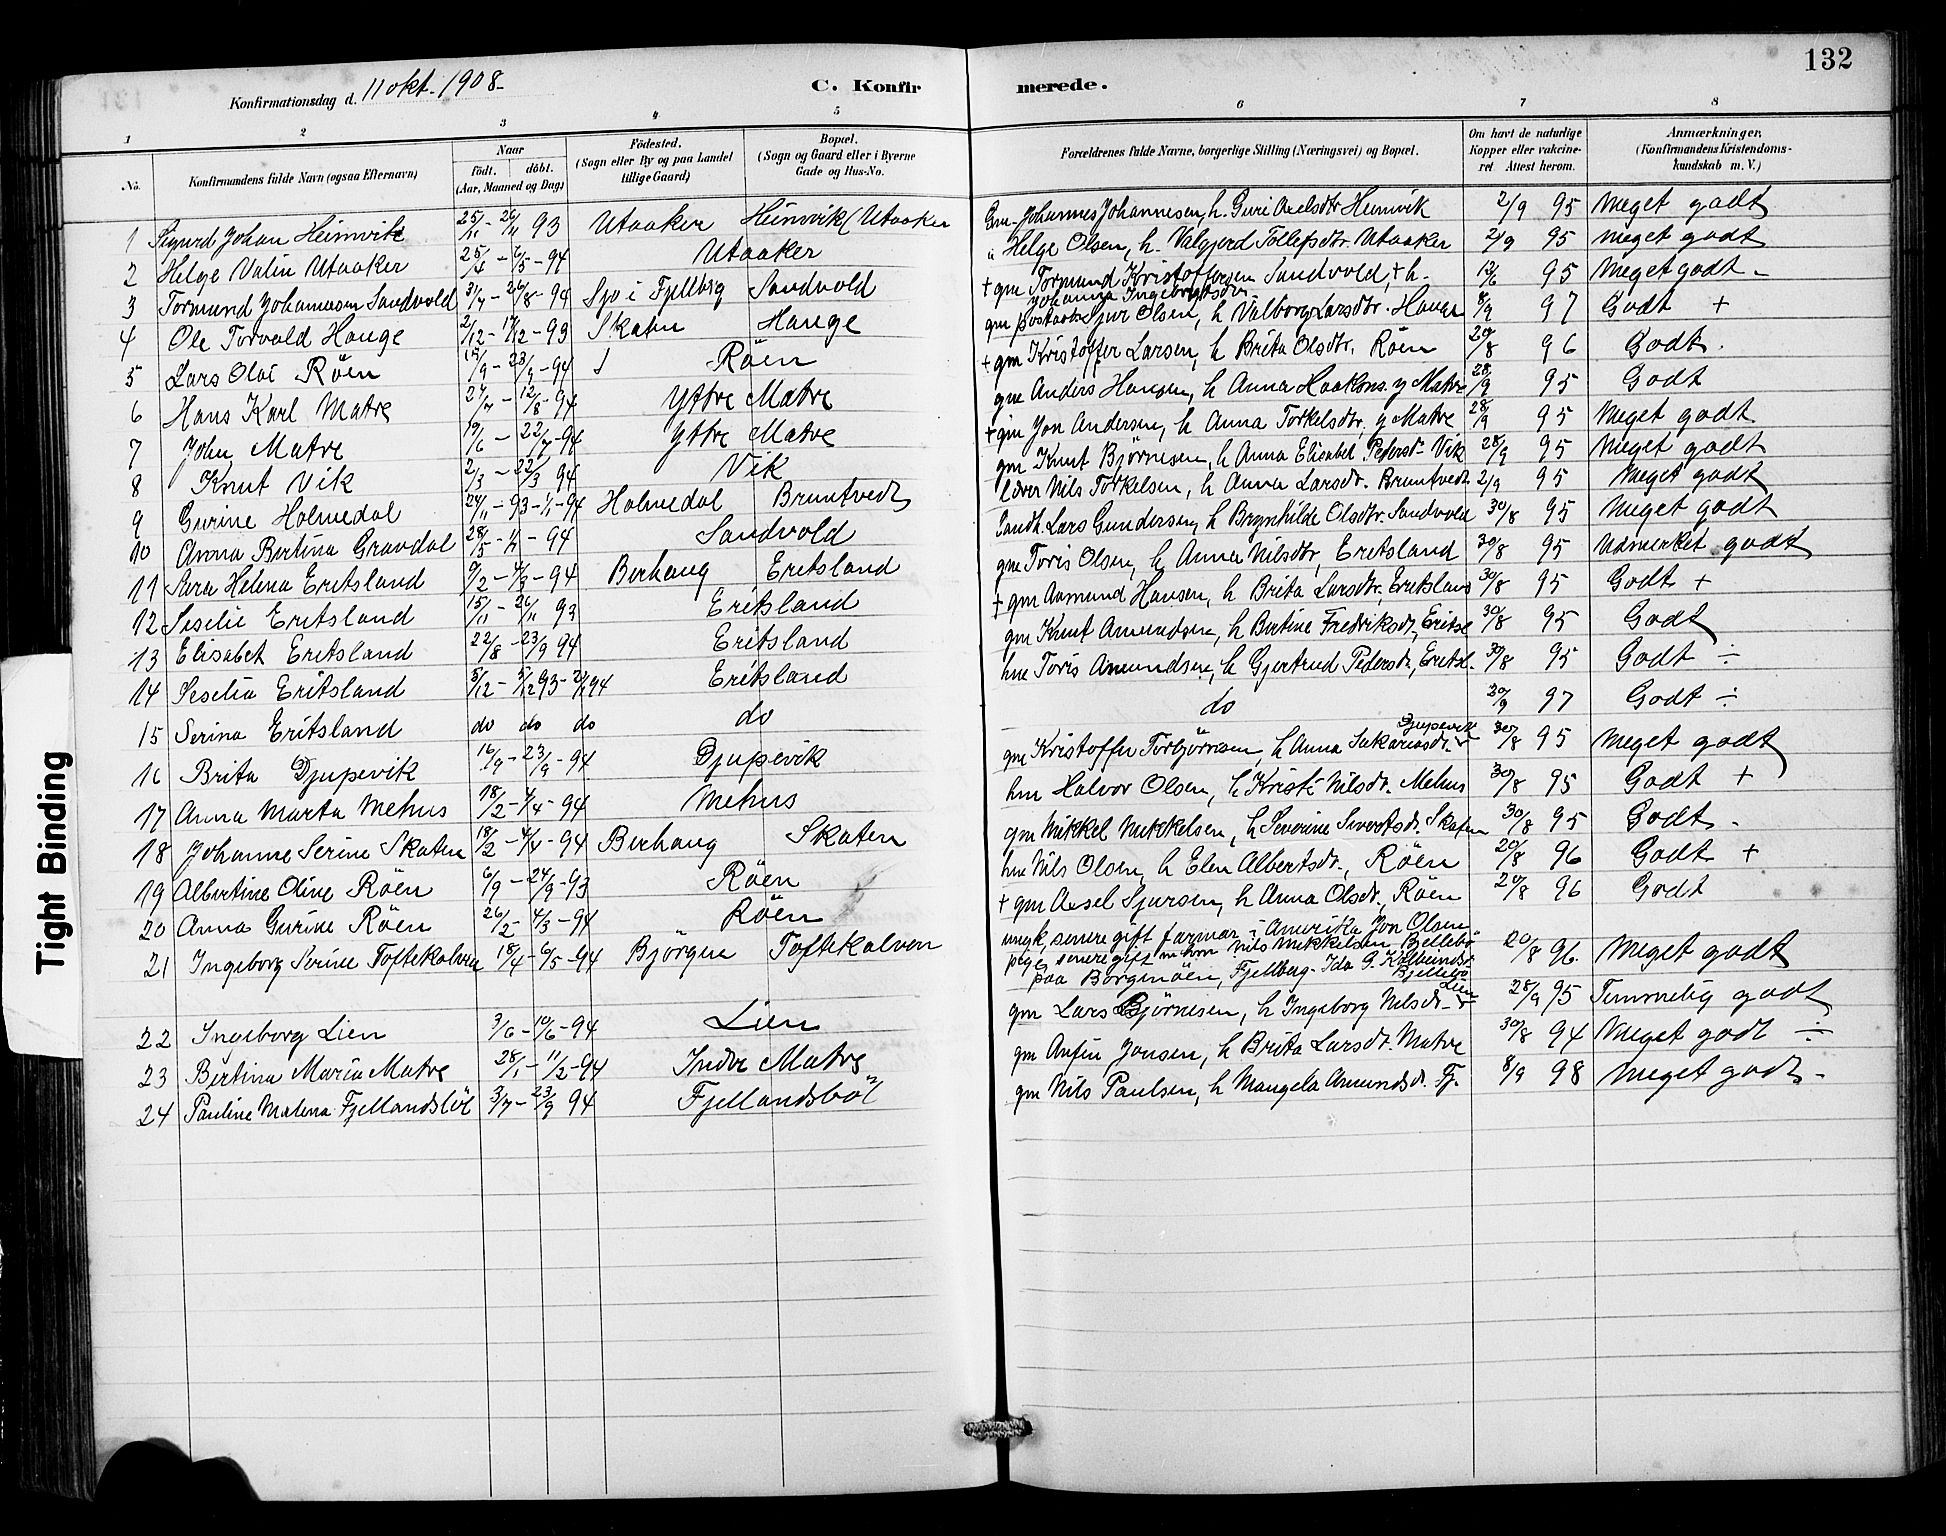 132
Konfirmationsdag d. 11 okt. 1908.
C. Konfirmerede.
1 2 3 4 5 6 7 8
No.
Konfirmandens fulde Navn (ogsaa Efternavn)
Naar
födt. döbt.
(Aar, Maaned og Dag)
Födested.
(Sogn eller By og paa Landet
tillige Gaard)
Bopæl.
(Sogn og Gaard eller i Byerne
Gade og Hus-No.
Forældrenes fulde Navne, borgerlige Stilling (Næringsvei) og Bopæl.
Om havt de naturlige
Kopper eller vakcine-
ret Attest herom.
Anmærkninger,
(Konfirmandens Kristendoms-
kundskab m. V.)
1 Sigurd Johan Heimvik 25/11 - 26/11 93 Utaaker Heimvik (Utaaker Gm. Johannes Johannesen, h. Guri Axelsdtr Heimvik 2/9 95 Meget godt
2 Helge Valin Utaaker 25/4 - 6/5 - 94 Utaaker " Helge Olsen, h. Valgjerd Tollefsdtr. Utaaker 2/9 95 Meget godt
3 Tormund Johannesen Sandvold 31/7 - 26/8 - 94 Sjo i Fjelberg Sandvold + gm Tormund Kristoffersen Sandvold, + h. Johanna Ingeborgsdtr 12/6 95 Meget godt -
4 Ole Torvald Hauge 2/12 - 17/12 - 93 Skaten Hauge gm Sjur Olsen, h Valborg Larsdtr. Hauge 8/9 97 Godt +
5 Lars Olai Röen 15/9 - 23/9 - 94 Röen + gm Kristoffer Larsen, h Brita Olsdtr. Röen 20/8 96 Godt.
6 Hans Karl Matre 27/7 - 12/8 - 94 Yttre Matre gm Anders Hansen, h Anna Haakons. y Matre 28/9 95 Godt
7 John Matre 19/6 - 22/7 - 94 Yttre Matre + gm Jon Andersen, h Anna Torkelsdtr, y Matre 28/9 95 Meget godt
8 Knut Vik 2/3 - 22/3 94 Vik gm Knut Björnesen, h Anna Elisabet Pedersdtr Vik 28/9 95 Meget godt
9 Gurine Holmedal 24/11 - 93 - 1/1 - 94 Holmedal Bruntvedt lærer Nils Torkelsen, h Anna Larsdtr. Bruntvedt 2/9 95 Meget godt
10 Anna Bertina Gravdal 28/5 - - 94 Sandvold Landh. Lars Gundersen, h Brynhilde Olsdtr. Sandvold 30/8 95 Meget godt
11 Sara Helena Eritsland 9/2 - 4/3 - 94 Berhaug Eritsland gm Toris Olsen, h Anna Nilsdtr, Eritsland 30/8 95 Udmerket godt
12 Seselie Eritsland 15/11 - 26/11 93 Eritsland + gm Aamund Hansen, h Brita Larsdtr, Eritsland 30/8 95 Godt +
13 Elisabet Eritsland 22/8 - 23/9 94 Eritsland gm Knut Amundsen, h Bertine Fredriksdtr, Eritsl 30/8 95 Godt
14 Seselia Eritsland 5/12 - 5/12 93 - 2/1 94 Eritsland hm Toris Amundsen, h Gjertrud Pedersdtr, Eritsl. 30/8 95 Godt ÷
15 Serina Eritsland do do do do do 30/9 97 Godt ÷
16 Brita Djupevik 16/9 - 23/9 - 94 Djupevik gm Kristoffer Torbjörnsen, h Anna Sakariasdtr. Djupevik 30/8 95 Meget godt
17 Anna Marta Mehus 18/2 - 4/4 - 94 Mehus hm Halvor Olsen, h Kristi Nilsdtr. Mehus 30/8 95 Godt +
18 Johanne Serine Skaten 18/2 - 4/4 - 94 Berhaug Skaten gm Mikkel Mikkelsen, h Severine Sivertsdtr. Skaten 30/8 95 Godt -
19 Albertine Oline Röen 6/9 - 24/9 - 93 Röen hm Nils Olsen, h Elen Albertsdtr., Röen 20/8 96 Godt +
20 Anna Gurine Röen 26/2 - 4/3 - 94 Röen + gm Axel Sjursen, h Anna Olsdtr., Röen 20/8 96 Godt
21 Ingeborg Serine Toftekalven 18/4 - 6/5 - 94 Björgen Toftekalven ungk, senere gift farmar i Amerika Jon Olsen
pige, senere gift m hm Nils Mikkelsen Bjellebö
paa Borgenöen, Fjellberg - Ida G. Kolbeinsdtr Bjellebö 20/8 96. Meget godt
22 Ingeborg Lien 3/6 - 10/6 - 94 Lien gm Lars Björnesen, h Ingeborg Nilsdtr - Lien 28/9 95 Temmelig godt
23 Bertina Maria Matre 28/1 - 11/2 - 94 Indre Matre gm Anfin Jonsen, h Brita Larsdtr. Matre 30/8 94 Meget godt ÷
24 Pauline Malena Fjellandsböl 3/7 - 23/9 94 Fjellandsböl gm Nils Paulsen, h Mangela Amundsdtr. Fj. 8/9 98 Meget godt -
Tight Binding